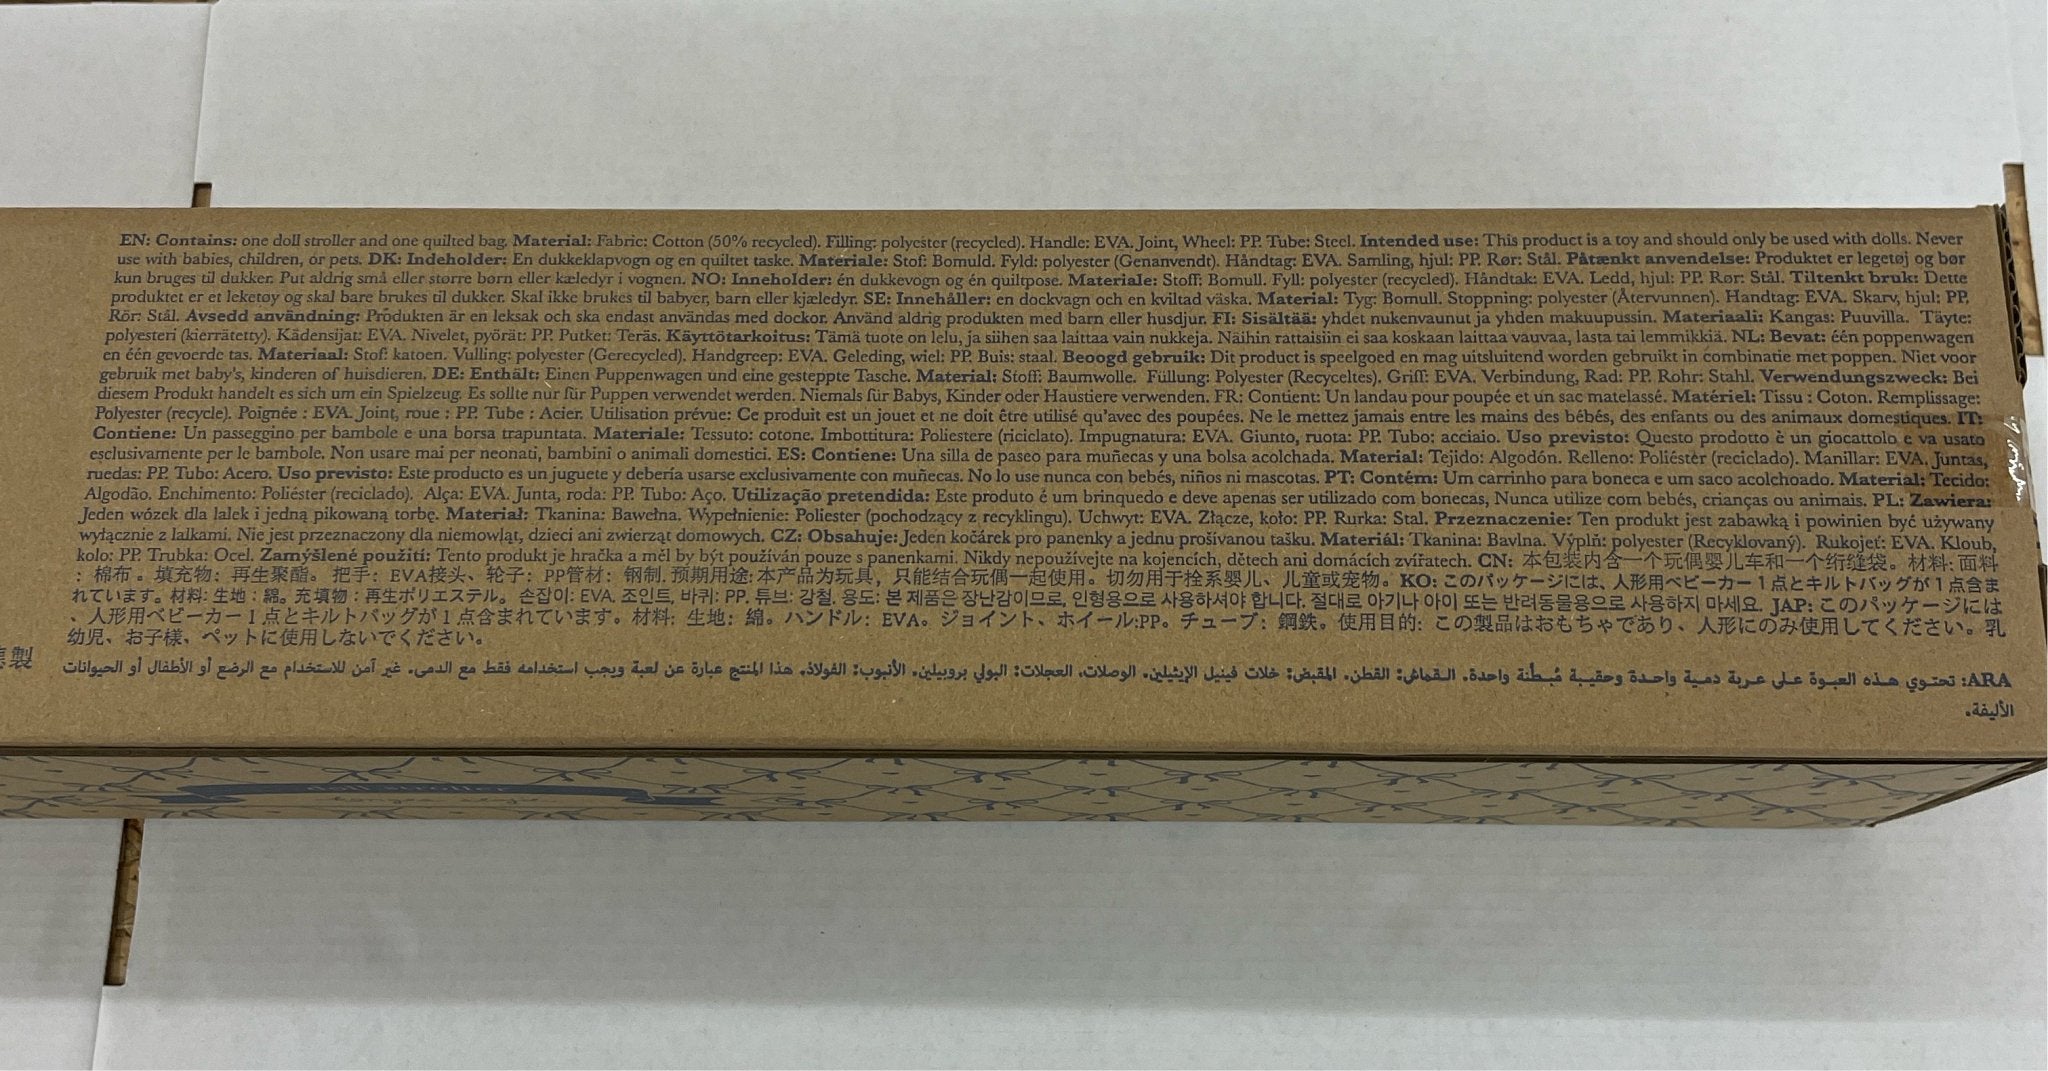 EN: Contains: one doll stroller and one quilted bag. Material: Fabric: Cotton (50% recycled). Filling: polyester (recycled). Handle: EVA. Joint, Wheel: PP. Tube: Steel. Intended use: This product is a toy and should only be used with dolls. Never
use with babies, children, or pets. DK: Indeholder: En dukkeklapvogn og en quiltet taske. Materiale: Stof: Bomuld. Fyld: polyester (Genanvendt). Håndtag: EVA. Samling, hjul: PP. Rør: Stål. Påtænkt anvendelse: Produktet er legetøj og bør
kun bruges til dukker. Put aldrig små eller større børn eller kæledyr i vognen. NO: Inneholder: én dukkevogn og én quiltpose. Materiale: Stoff: Bomull. Fyll: polyester (recycled). Håndtak: EVA. Ledd, hjul: PP. Rør: Stål. Tiltenkt bruk: Dette
produktet er et leketøy og skal bare brukes til dukker. Skal ikke brukes til babyer, barn eller kjæledyr. SE: Innehåller: en dockvagn och en kviltad väska. Material: Tyg: Bomull. Stoppning: polyester (Återvunnen). Handtag: EVA. Skarv, hjul: PP.
Rör: Stål. Avsedd användning: Produkten är en leksak och ska endast användas med dockor. Använd aldrig produkten med barn eller husdjur. FI: Sisältää: yhdet nukenvaunut ja yhden makuupussin. Materiaali: Kangas: Puuvilla. Täyte:
polyesteri (kierrätetty). Kädensijat: EVA. Nivelet, pyörät: PP. Putket: Teräs. Käyttötarkoitus: Tämä tuote on lelu, ja siihen saa laittaa vain nukkeja. Näihin rattaisiin ei saa koskaan laittaa vauvaa, lasta tai lemmikkiä. NL: Bevat: één poppenwagen
en één gevoerde tas. Materiaal: Stof: katoen. Vulling: polyester (Gerecycled). Handgreep: EVA. Geleding, wiel: PP. Buis: staal. Beoogd gebruik: Dit product is speelgoed en mag uitsluitend worden gebruikt in combinatie met poppen. Niet voor
gebruik met baby's, kinderen of huisdieren. DE: Enthält: Einen Puppenwagen und eine gesteppte Tasche. Material: Stoff: Baumwolle. Füllung: Polyester (Recyceltes). Griff: EVA. Verbindung, Rad: PP. Rohr: Stahl. Verwendungszweck: Bei
diesem Produkt handelt es sich um ein Spielzeug. Es sollte nur für Puppen verwendet werden. Niemals für Babys, Kinder oder Haustiere verwenden. FR: Contient: Un landau pour poupée et un sac matelassé. Matériel: Tissu : Coton. Remplissage:
Polyester (recycle). Poignée : EVA. Joint, roue : PP. Tube : Acier. Utilisation prévue: Ce produit est un jouet et ne doit être utilisé qu'avec des poupées. Ne le mettez jamais entre les mains des bébés, des enfants ou des animaux domestiques. IT:
Contiene: Un passeggino per bambole e una borsa trapuntata. Materiale: Tessuto: cotone. Imbottitura: Poliestere (riciclato). Impugnatura: EVA. Giunto, ruota: PP. Tubo: acciaio. Uso previsto: Questo prodotto è un giocattolo e va usato
esclusivamente per le bambole. Non usare mai per neonati, bambini o animali domestici. ES: Contiene: Una silla de paseo para muñecas y una bolsa acolchada. Material: Tejido: Algodón. Relleno: Poliéster (reciclado). Manillar: EVA. Juntas,
ruedas: PP. Tubo: Acero. Uso previsto: Este producto es un juguete y debería usarse exclusivamente con muñecas. No lo use nunca con bebés, niños ni mascotas. PT: Contém: Um carrinho para boneca e um saco acolchoado. Material: Tecido:
Algodão. Enchimento: Poliéster (reciclado). Alça: EVA. Junta, roda: PP. Tubo: Aço. Utilização pretendida: Este produto é um brinquedo e deve apenas ser utilizado com bonecas, Nunca utilize com bebés, crianças ou animais. PL: Zawiera:
Jeden wózek dla lalek i jedną pikowaną torbę. Materiał: Tkanina: Bawełna. Wypełnienie: Poliester (pochodzący z recyklingu). Uchwyt: EVA. Złącze, koło: PP. Rurka: Stal. Przeznaczenie: Ten produkt jest zabawką i powinien być używany
wyłącznie z lalkami. Nie jest przeznaczony dla niemowląt, dzieci ani zwierząt domowych. CZ: Obsahuje: Jeden kočárek pro panenky a jednu prošívanou tašku. Materiál: Tkanina: Bavlna. Výplň: polyester (Recyklovaný). Rukojeť: EVA. Kloub,
kolo: PP. Trubka: Ocel. Zamýšlené použití: Tento produkt je hračka a měl by být používán pouze s panenkami. Nikdy nepoužívejte na kojencích, dětech ani domácích zvířatech. CN: 本包装内含一个玩偶婴儿车和一个绗缝袋。材料: 面料
: 棉布 。填充物: 再生聚酯。 把手: EVA接头、轮子: PP管材: 钢制. 预期用途: 本产品为玩具，只能结合玩偶一起使用。切勿用于拴系婴儿、儿童或宠物。KO: このパッケージには、人形用ベビーカー１点とキルトバッグが１点含ま
れています。材料: 生地：綿。充填物：再生ポリエステル。 손잡이: EVA. 조인트, 바퀴: PP. 튜브: 강철. 용도: 본 제품은 장난감이므로, 인형용으로 사용하셔야 합니다. 절대로 아기나 아이 또는 반려동물용으로 사용하지 마세요. JAP: このパッケージには
、人形用ベビーカー１点とキルトバッグが１点含まれています。材料: 生地: 綿。ハンドル: EVA。ジョイント、ホイール:PP。チューブ: 鋼鉄。使用目的: この製品はおもちゃであり、人形にのみ使用してください。乳
幼児、お子様、ペットに使用しないでください。
製
ARA: تحتوي هذه العبوة على عربة دمية واحدة وحقيبة مُبطَّنة واحدة. القماش: القطن. المقبض: خلات فينيل الإيثيلين. الوصلات، العجلات: البولي بروبيلين. الأنبوب: الفولاذ. هذا المنتج عبارة عن لعبة ويجب استخدامه فقط مع الدمى. غير آمن للاستخدام مع الرضع أو الأطفال أو الحيوانات
الأليفة.
doll stroller